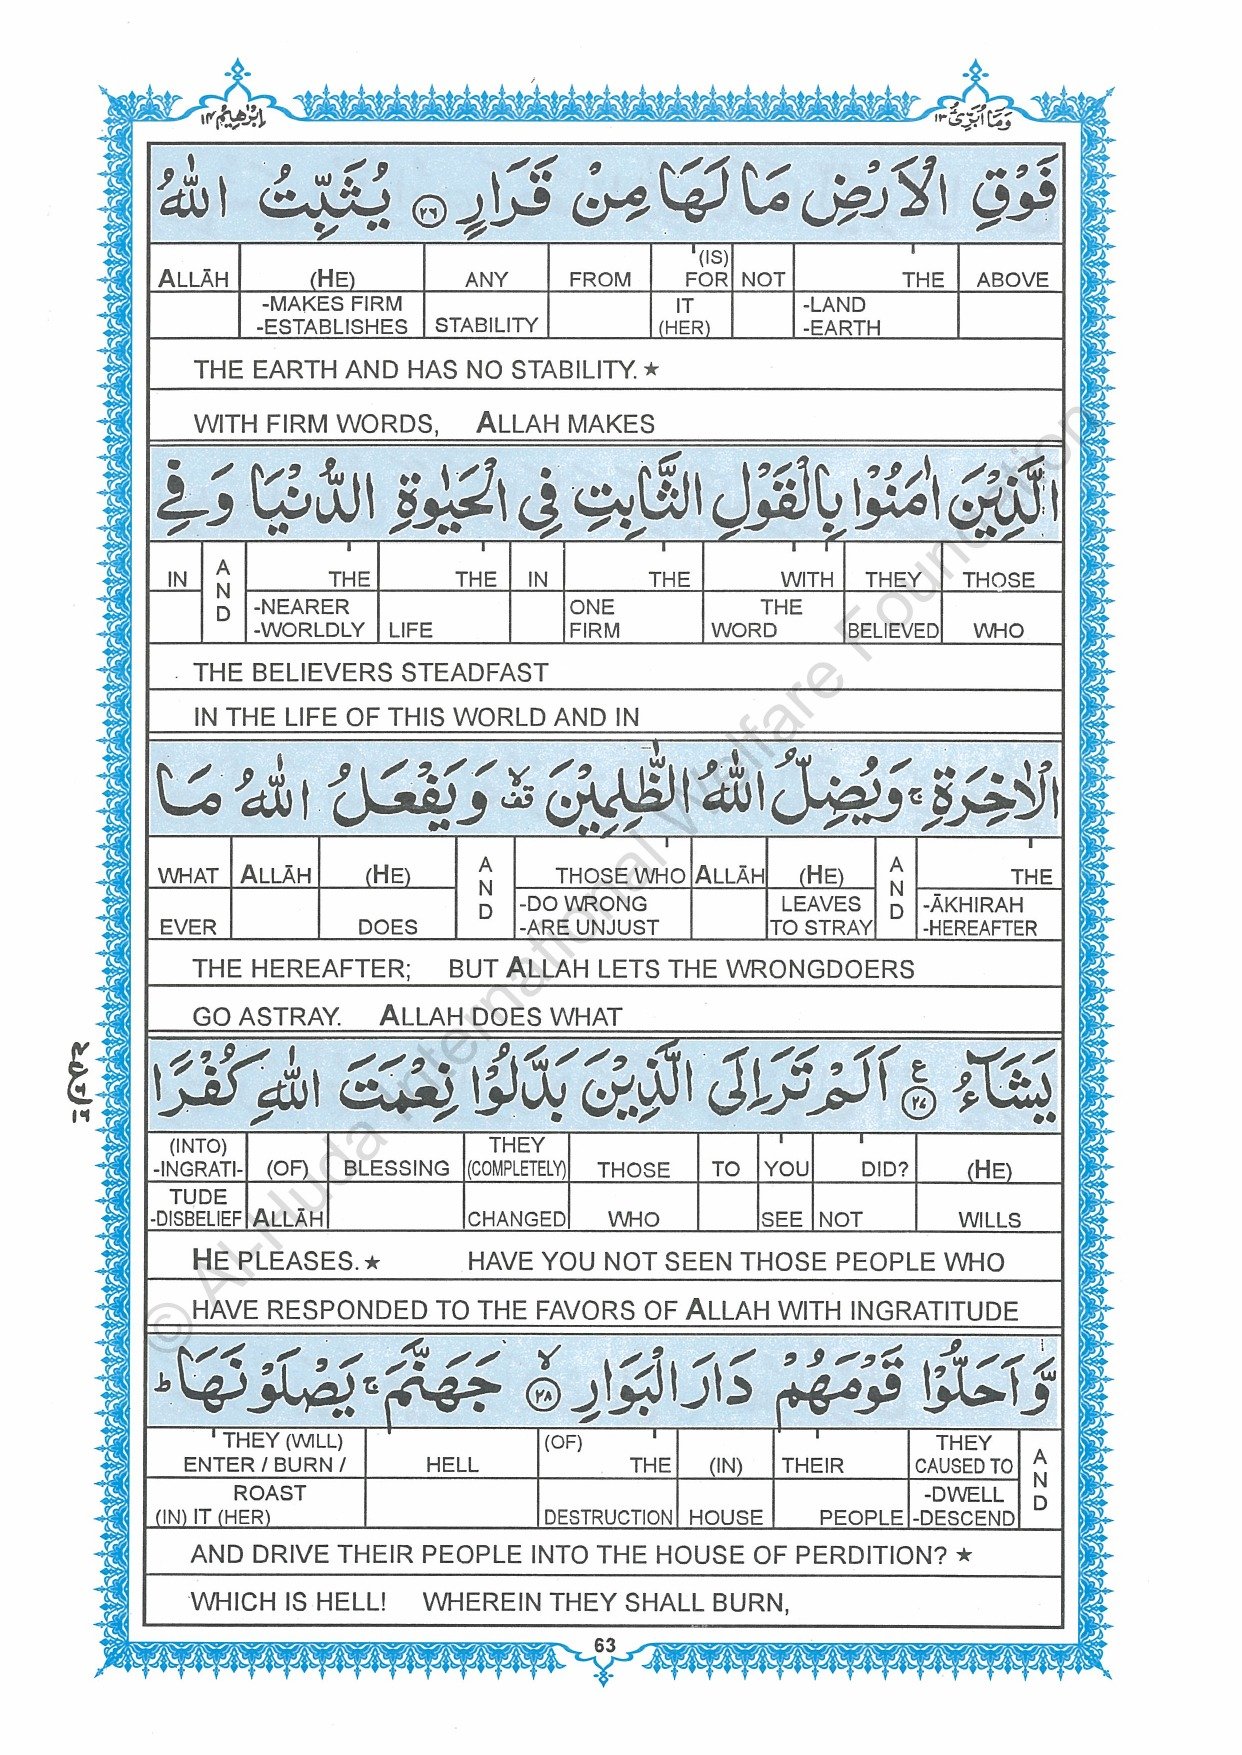 اِبْرٰهِيْمُ ١٤
وَمَآ اُبَرِّئُ ١٣
فَوْقِ الْاَرْضِ مَا لَهَا مِنْ قَرَارٍ ﴿٢٦﴾ يُثَبِّتُ اللّٰهُ
ALLĀH (HE) ANY FROM (IS) FOR NOT THE ABOVE
-MAKES FIRM -ESTABLISHES STABILITY IT (HER) -LAND -EARTH
THE EARTH AND HAS NO STABILITY.★
WITH FIRM WORDS, ALLAH MAKES
الَّذِيْنَ اٰمَنُوْا بِالْقَوْلِ الثَّابِتِ فِى الْحَيٰوةِ الدُّنْيَا وَفِى
IN AND THE THE IN THE WITH THEY THOSE
-NEARER -WORLDLY LIFE ONE FIRM THE WORD BELIEVED WHO
THE BELIEVERS STEADFAST
IN THE LIFE OF THIS WORLD AND IN
الْاٰخِرَةِ ۚ وَيُضِلُّ اللّٰهُ الظّٰلِمِيْنَ ۙ قف وَيَفْعَلُ اللّٰهُ مَا
WHAT ALLĀH (HE) AND THOSE WHO ALLĀH (HE) AND THE
EVER DOES -DO WRONG -ARE UNJUST LEAVES TO STRAY -ĀKHIRAH -HEREAFTER
THE HEREAFTER; BUT ALLAH LETS THE WRONGDOERS
GO ASTRAY. ALLAH DOES WHAT
يَشَآءُ ﴿٢٧﴾ ع اَلَمْ تَرَ اِلَى الَّذِيْنَ بَدَّلُوْا نِعْمَتَ اللّٰهِ كُفْرًا
(INTO) -INGRATI- (OF) BLESSING THEY (COMPLETELY) THOSE TO YOU DID? (HE)
TUDE -DISBELIEF ALLĀH CHANGED WHO SEE NOT WILLS
HE PLEASES.★ HAVE YOU NOT SEEN THOSE PEOPLE WHO
HAVE RESPONDED TO THE FAVORS OF ALLAH WITH INGRATITUDE
وَّاَحَلُّوْا قَوْمَهُمْ دَارَ الْبَوَارِ ۙ ﴿٢٨﴾ جَهَنَّمَ ۚ يَصْلَوْنَهَا ؕ
THEY (WILL) ENTER / BURN / HELL (OF) THE (IN) THEIR THEY CAUSED TO AND
ROAST (IN) IT (HER) DESTRUCTION HOUSE PEOPLE -DWELL -DESCEND
AND DRIVE THEIR PEOPLE INTO THE HOUSE OF PERDITION? ★
WHICH IS HELL! WHEREIN THEY SHALL BURN,
63
© Al-Huda International Welfare Foundation